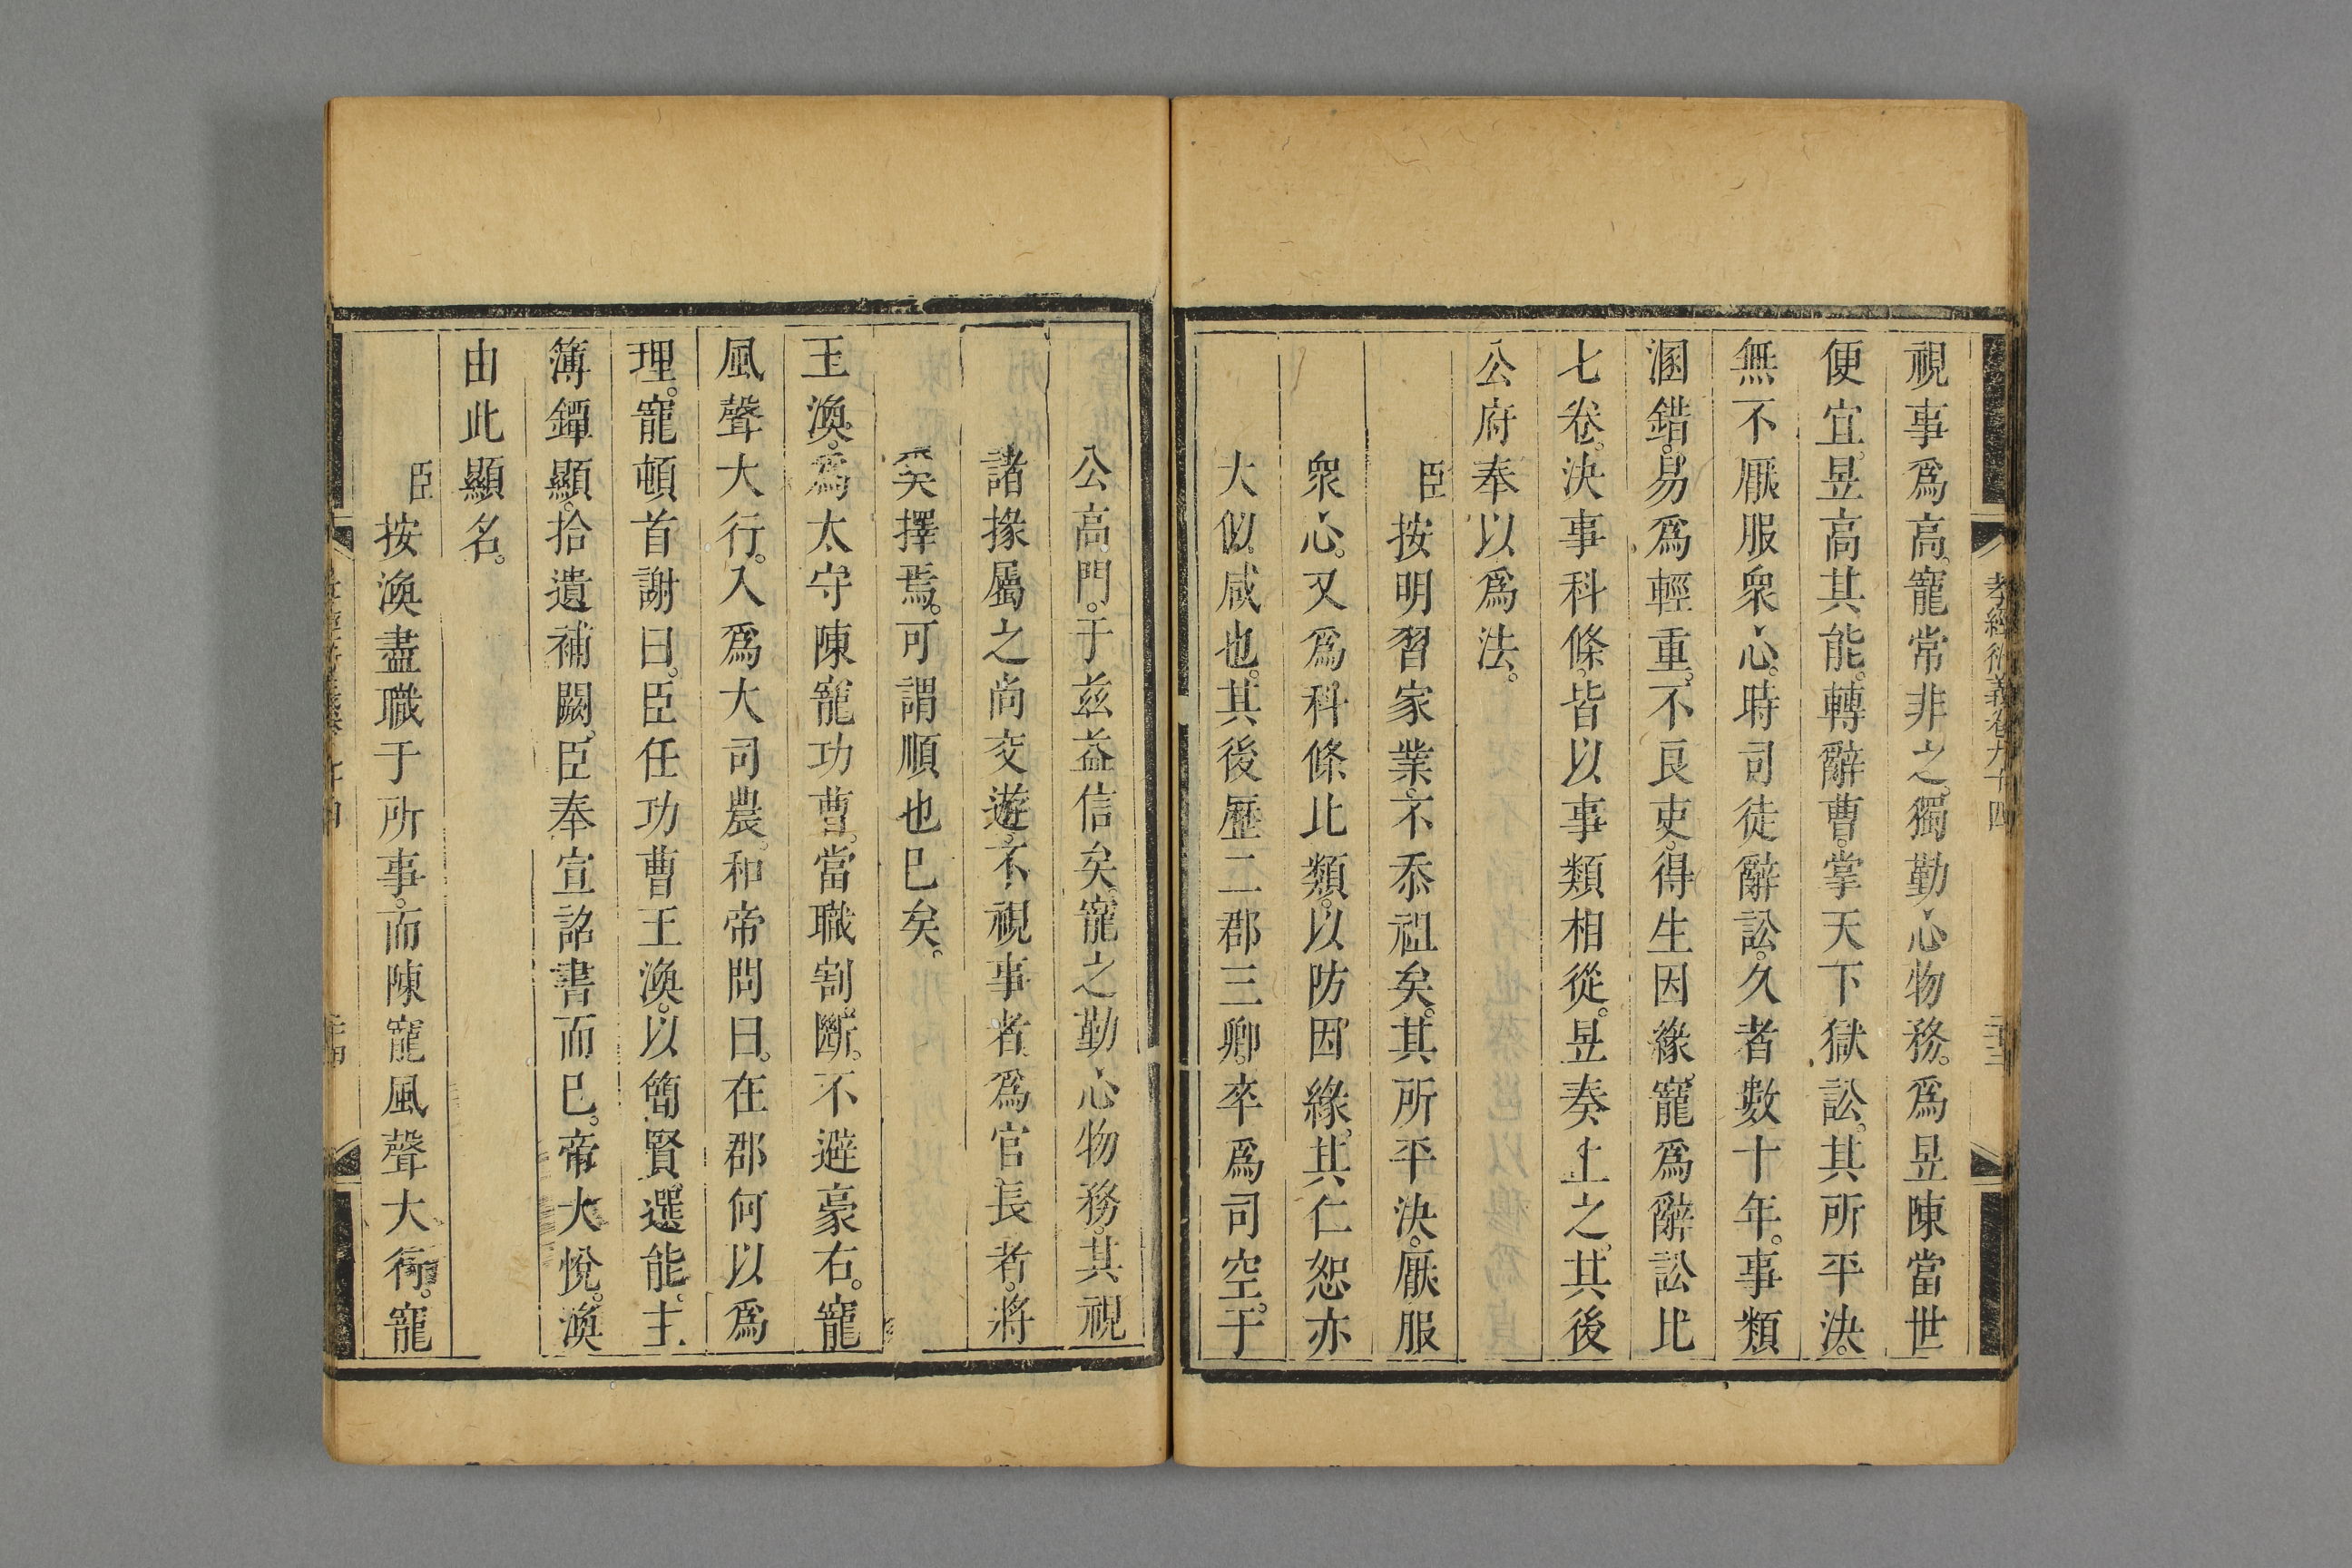 孝經衍義卷九十四
視事爲高。寵常非之。獨勤心物務。爲昱陳當世
便宜。昱高其能。轉辭曹。掌天下獄訟。其所平決。
無不厭服衆心。時司徒辭訟。久者數十年。事類
溷錯。易爲輕重。不良吏。得生因緣。寵爲辭訟比
七卷。決事科條。皆以事類相從。昱奏上之。其後
公府奉以爲法。
臣按明習家業。不忝祖矣。其所平決。厭服
衆心。又爲科條比類。以防因緣。其仁恕亦
大似咸也。其後歷二郡三卿。卒爲司空。于
公高門。于茲益信矣。寵之勤心物務。其視
諸掾屬之尚交遊。不視事者。爲官長者。將
奚擇焉。可謂順也已矣。
王渙。爲太守陳寵功曹。當職割斷。不避豪右。寵
風聲大行。入爲大司農。和帝問曰。在郡何以爲
理。寵頓首謝曰。臣任功曹王渙。以簡賢選能。主
簿鐔顯。拾遺補闕。臣奉宣詔書而已。帝大悅。渙
由此顯名。
臣按渙盡職于所事。而陳寵風聲大行。寵